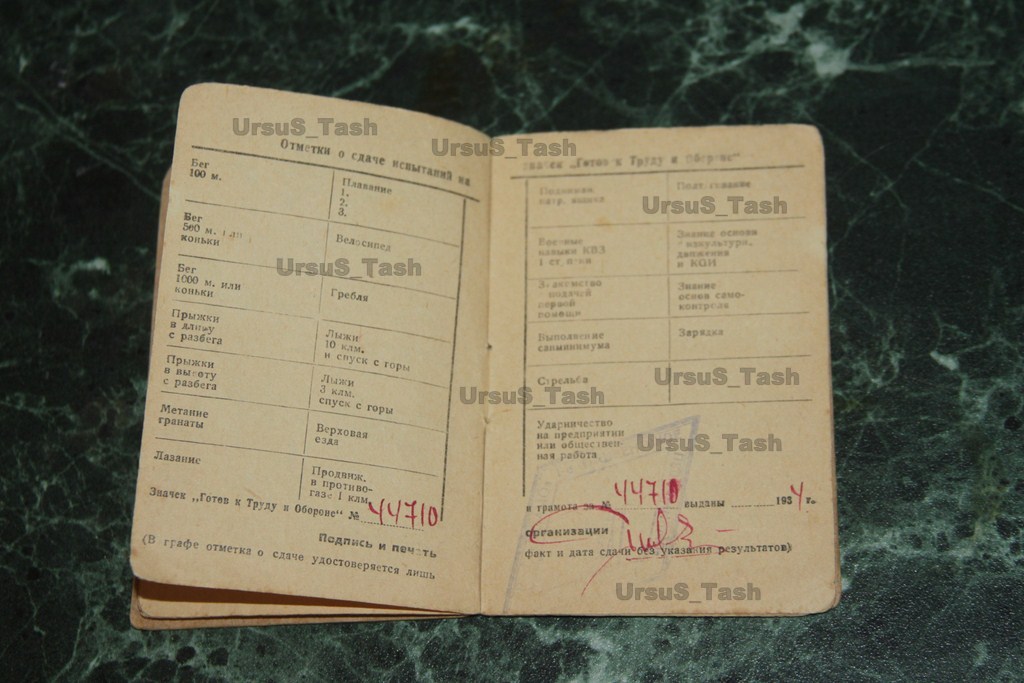 UrsuS_Tash
UrsuS_Tash
Отметки о сдаче испытаний на
Бег
100 м.
Плавание
1.
2.
3.
Бег
500 м. или
коньки
Велосипед
UrsuS_Tash
Бег
1000 м. или
коньки
Гребля
Прыжки
в длину
с разбега
Лыжи
10 клм.
и спуск с горы
Прыжки
в высоту
с разбега
Лыжи
3 клм.
спуск с горы
Метание
гранаты
Верховая
езда
Лазание
Продвиж.
в противо-
газе 1 клм.
Значек „Готов к Труду и Обороне" № 44710
Подпись и печать
(В графе отметка о сдаче удостоверяется лишь
значек „Готов к Труду и Обороне"
Поднятие
патр. ящика
UrsuS_Tash
Военные
навыки КВЗ
1 ступени
Знание основ
физкультурн.
движения
и КОИ
Знакомство
с подачей
первой
помощи
Знание
основ само-
контроля
Выполнение
санминимума
Зарядка
Стрельба
UrsuS_Tash
UrsuS_Tash
Ударничество
на предприятии
или обществен-
ная работа
UrsuS_Tash
и грамота за № 44710 выданы 1934 г.
организации
факт и дата сдачи без указания результатов)
UrsuS_Tash